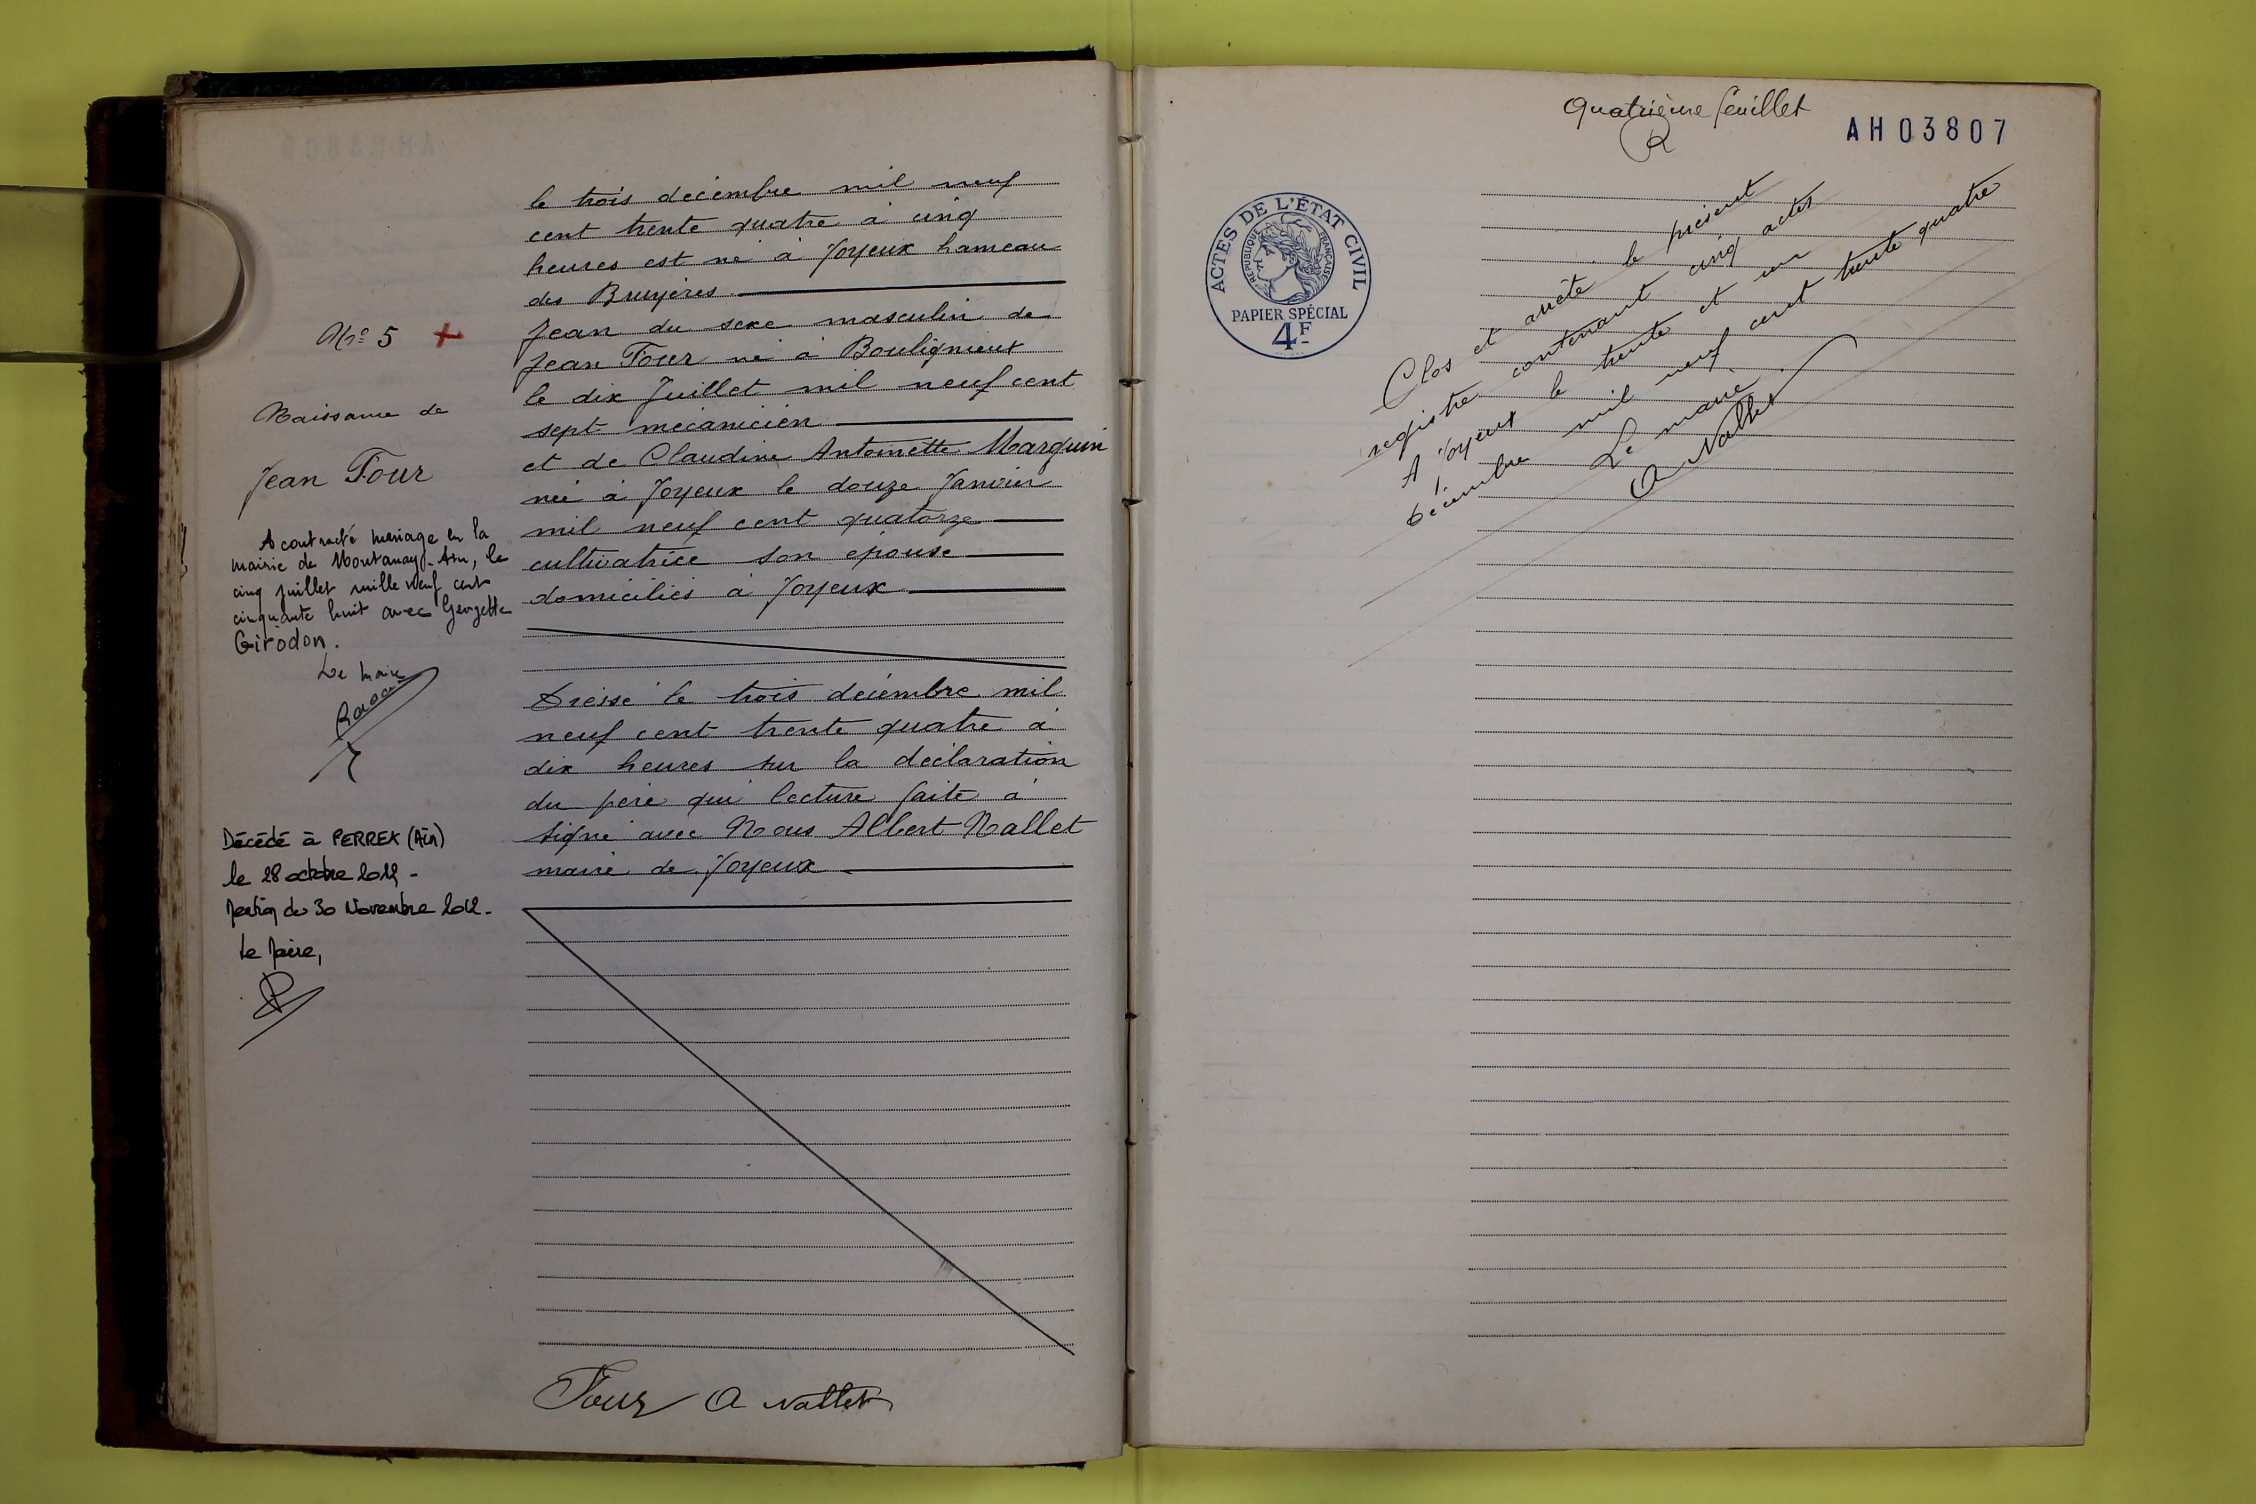 N° 5 +
Naissance de
Jean Tour
A contracté mariage en la
mairie de Montanay - Ain, le
cinq juillet mille neuf cent
cinquante huit avec Georgette
Girodon.
Le maire
Décédé à PERREX (Ain)
le 28 octobre 2012 -
Mention du 30 Novembre 2012 -
Le Maire,
le trois décembre mil neuf
cent trente quatre à cinq
heures est né à Joyeux hameau
des Bruyères
Jean du sexe masculin de
Jean Tour né à Bouligneux
le dix Juillet mil neuf cent
sept mécanicien
et de Claudine Antoinette Marguin
née à Joyeux le douze Janvier
mil neuf cent quatorze
cultivatrice son épouse
domiciliés à Joyeux
Dressé le trois décembre mil
neuf cent trente quatre à
dix heures sur la déclaration
du père qui lecture faite a
signé avec Nous Albert Nallet
maire de Joyeux
Tour A Nallet
Quatrième feuillet
AH03807
ACTES DE L'ÉTAT CIVIL
RÉPUBLIQUE FRANÇAISE
PAPIER SPÉCIAL
4F
Clos et arrêté le présent
registre contenant cinq actes
A Joyeux le trente et un
décembre mil neuf cent trente quatre
Le maire
A Nallet